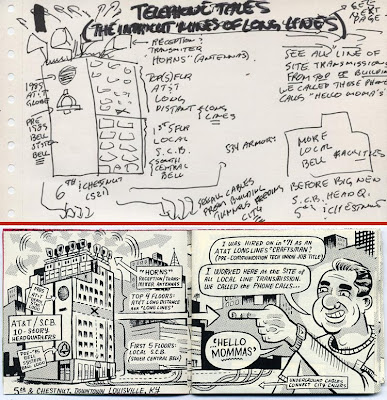 TELEPHONE TALES
(THE INTRICUT LINES OF LONG LINES)
SEE
NEXT
PAGE
RECEPTION &
TRANSMITER
HORNS" (ANTENNAS)
TOP 4 FLRS
AT&T
LONG
DISTANT & LONG
LINES
1ST 5 FLR
LOCAL
S.C.B.
SOUTH
CENTRAL
BELL
1985
AT&T
GLOBE
PRE
1985
BELL
SYSTEM
BELL
6TH & CHESTNUT
(521)
SEE ALL "LINE OF
SITE TRANSMISSION
FROM TOP OF BUILDING
WE CALLED THOSE PHONE
CALLS "HELLO MOMA'S"
ARMORY
MORE
LOCAL
BELL FACILITIES
BEFORE BIG NEW
S.C.B. HEAD Q.
CHESTNUT
CABLES
FROM BUILDING
CITY
"HORNS"
(RECEPTION/TRANS-
MITTER ANTENNAS)
TOP 4 FLOORS:
AT&T LONG DISTANCE
AND "LONG LINES"
AT&T/S.C.B.
10-STORY
HEADQUARTERS
FIRST 5 FLOORS:
LOCAL S.C.B.
(SOUTH CENTRAL BELL)
& CHESTNUT, DOWNTOWN LOUISVILLE, KY
I WAS HIRED ON IN '71 AS AN
AT&T LONG LINES "CRAFTSMAN"
(PRE-COMMUNICATION TECH UNION JOB TITLE)
I WORKED HERE AT THE SITE OF
ALL LOCAL LINE TRANSMISSION.
WE CALLED THE PHONE CALLS...
"HELLO
MOMMAS"
UNDERGROUND CABLES
CONNECT CITY CALLERS